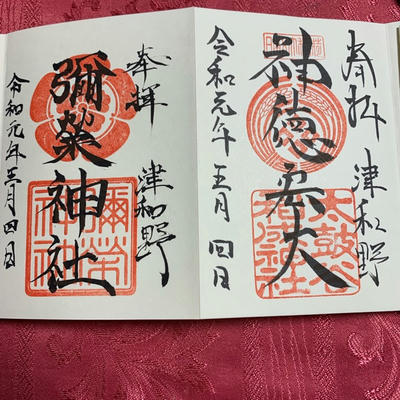 奉拝 津和野
神徳宏大
太鼓谷
稲成
神社
令和元年五月四日
奉拝 津和野
彌榮神社
彌榮
神社
令和元年五月四日